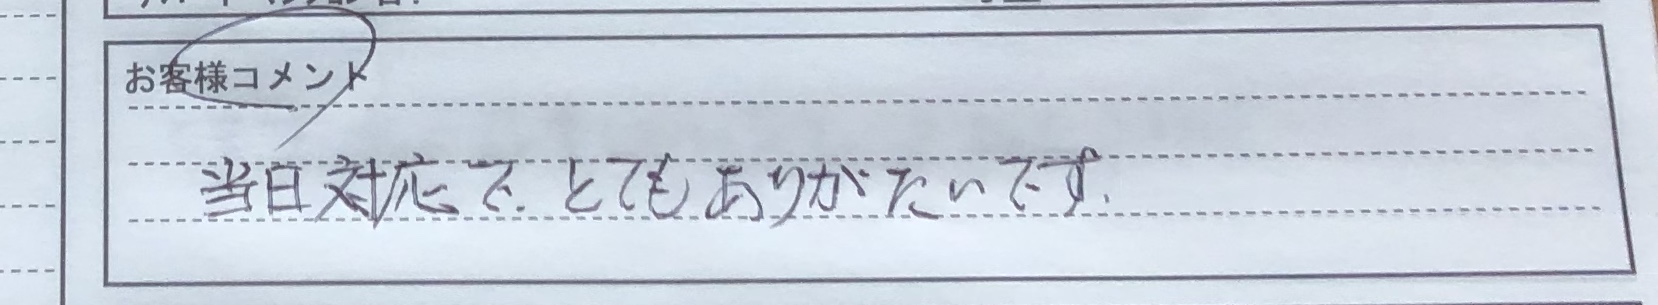 お客様コメント
当日対応で、とてもありがたいです。